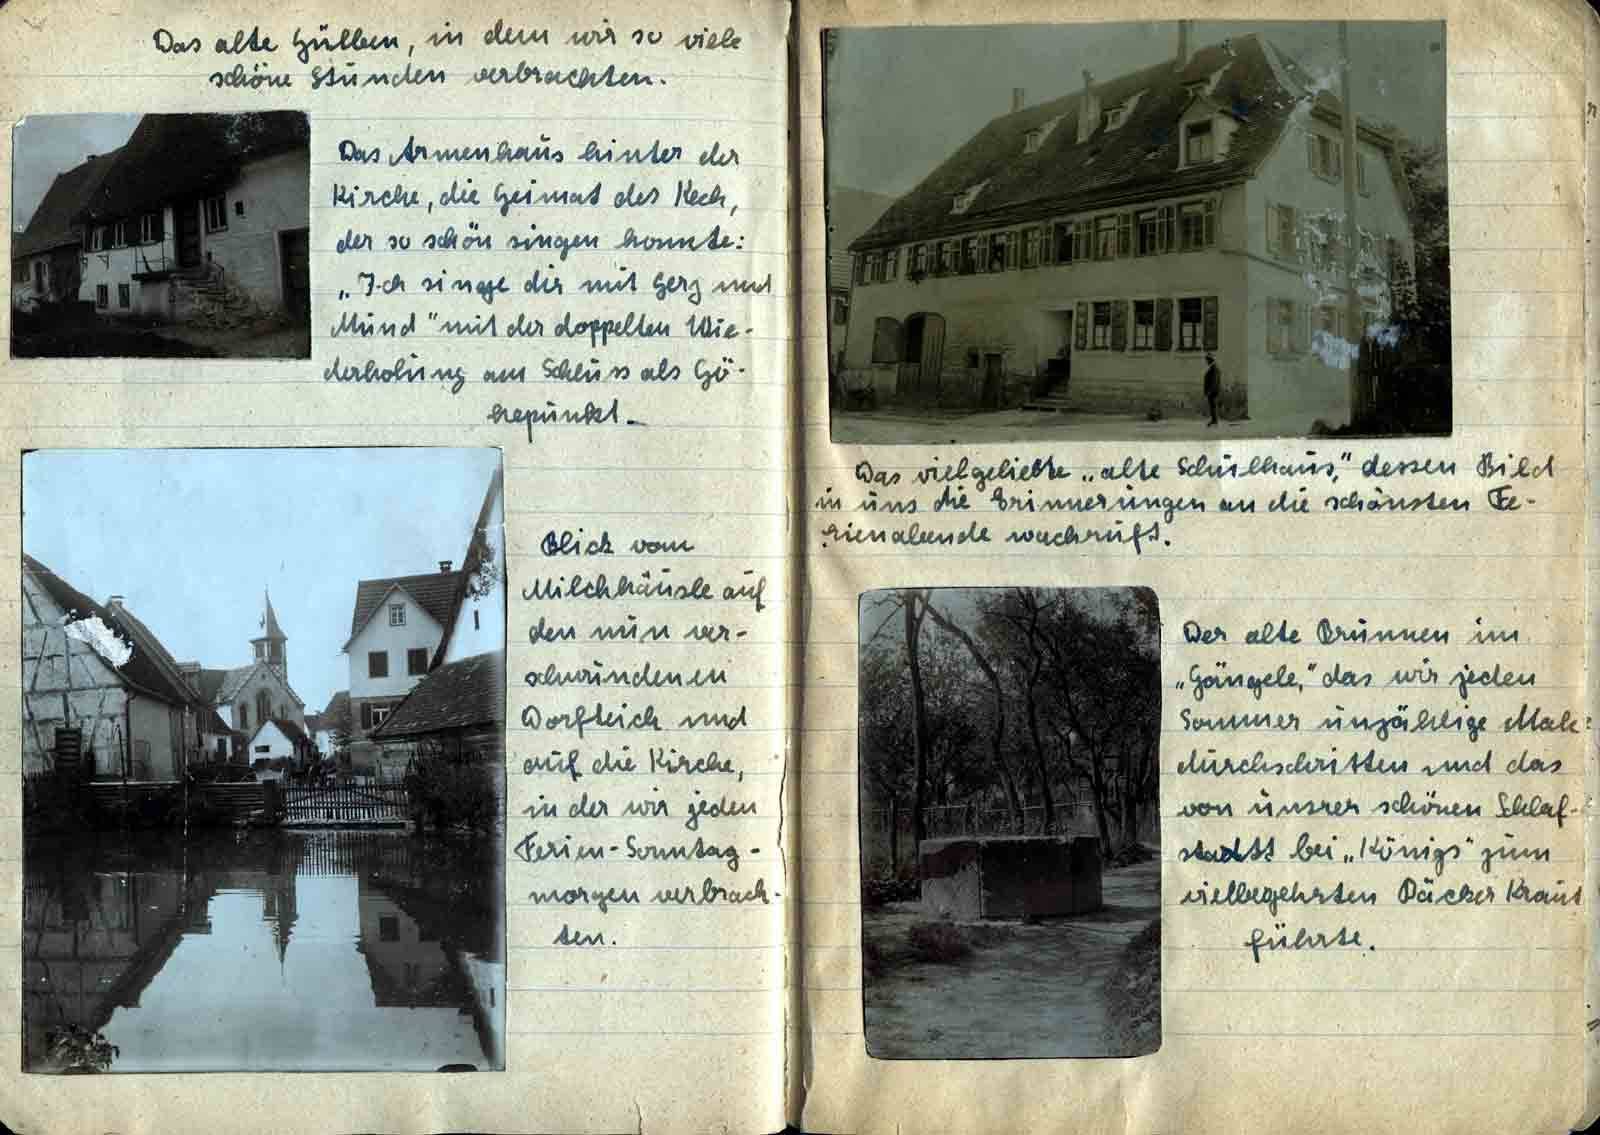 Das alte Gülben, in dem wir so viele
schöne Stunden verbrachten.
Das Armenhaus hinter der
Kirche, die Heimat des Kech,
der so schön singen konnte:
„Ich singe dir mit Herz und
Mund" mit der doppelten Wie-
derholung am Schluss als Hö-
hepunkt.
Blick vom
Milchhäusle auf
den nun ver-
schwundenen
Dorfteich und
auf die Kirche,
in der wir jeden
Ferien-Sonntag-
morgen verbrach-
ten.
Das vielgeliebte „alte Schulhaus," dessen Bild
in uns die Erinnerungen an die schönsten Fe-
rienabende wachruft.
Der alte Brunnen im
„Gängele," das wir jeden
Sommer unzählige Male
durchschritten und das
von unsrer schönen Schlaf-
stadt bei „Königs" zum
vielbegehrten Bäcker Kraut
führte.